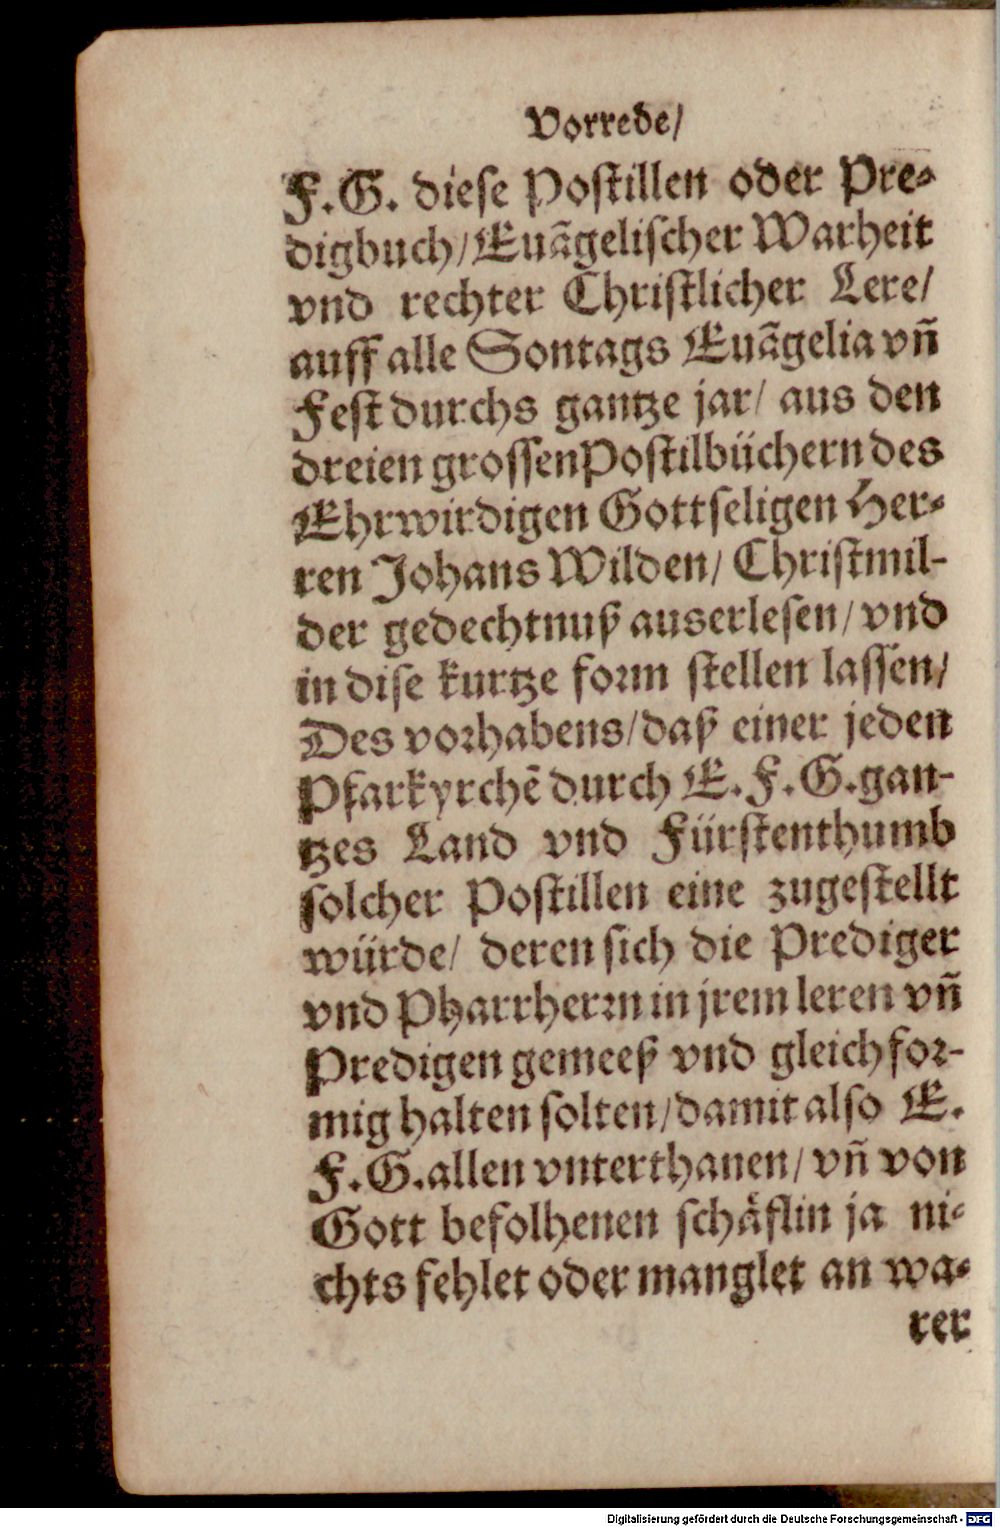 Vorrede/
F. G. diese Postillen oder Pre-
digbuch/ Euãgelischer Warheit
vnd rechter Christlicher Lere/
auff alle Sontags Euãgelia vñ
Fest durchs gantze jar/ aus den
dreien grossen Postilbüchern des
Ehrwirdigen Gottseligen Her-
ren Johans Wilden/ Christmil-
der gedechtnuß auserlesen/ vnd
in dise kurtze form stellen lassen/
Des vorhabens/ daß einer jeden
Pfarkyrchẽ durch E. F. G. gan-
tzes Land vnd Fürstenthumb
solcher Postillen eine zugestellt
würde/ deren sich die Prediger
vnd Pharrherrn in jrem leren vñ
Predigen gemeeß vnd gleichfor-
mig halten solten/ damit also E.
F. G. allen vnterthanen/ vñ von
Gott befolhenen schäflin ja ni-
chts fehlet oder manglet an wa-
rer
Digitalisierung gefördert durch die Deutsche Forschungsgemeinschaft - DFG